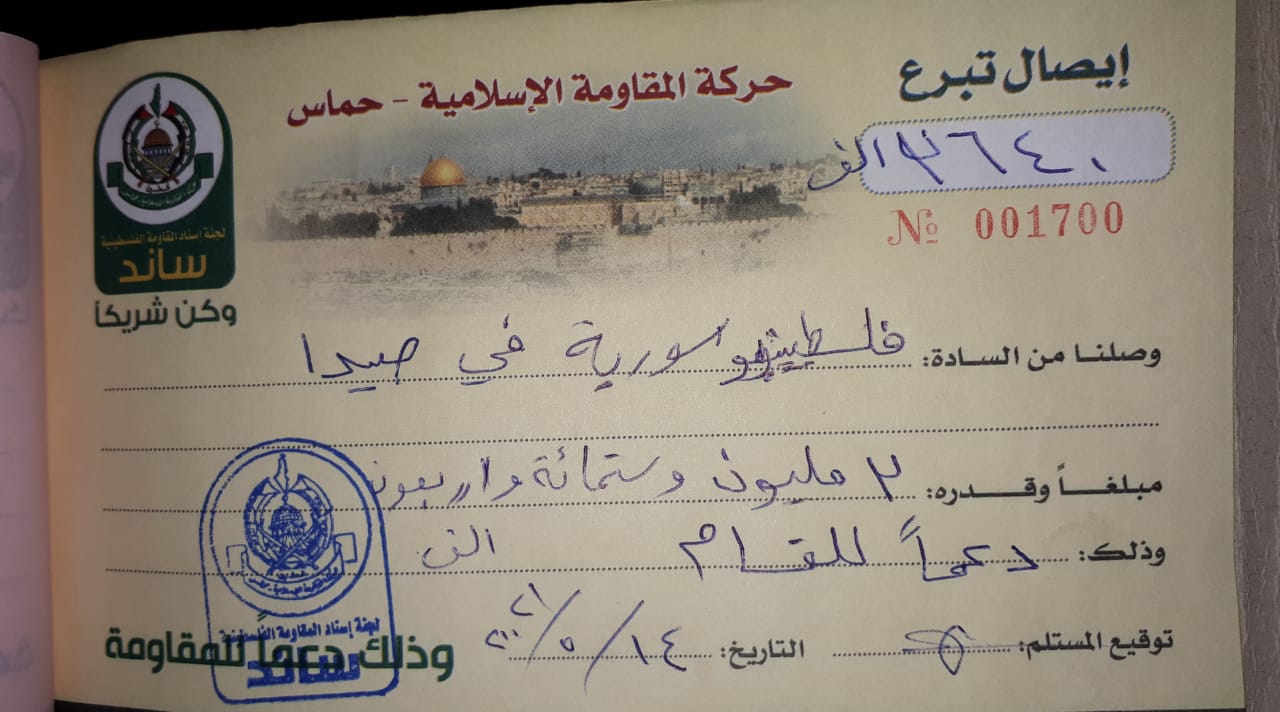 إيصال تبرع
حركة المقاومة الإسلامية - حماس
٢٦٤٠ الف
№ 001700
لجنة إسناد المقاومة الفلسطينية
ساند
وكن شريكاً
وصلنا من السادة: فلسطينيو سورية في صيدا
مبلغاً وقدره: ٢ مليون وستمائة واربعون
الف
وذلك: دعماً للقسام
توقيع المستلم:
التاريخ: ١٤ / ٥ / ٢٠٠٢١
وذلك دعماً للمقاومة
لجنة إسناد المقاومة الفلسطينية
ساند